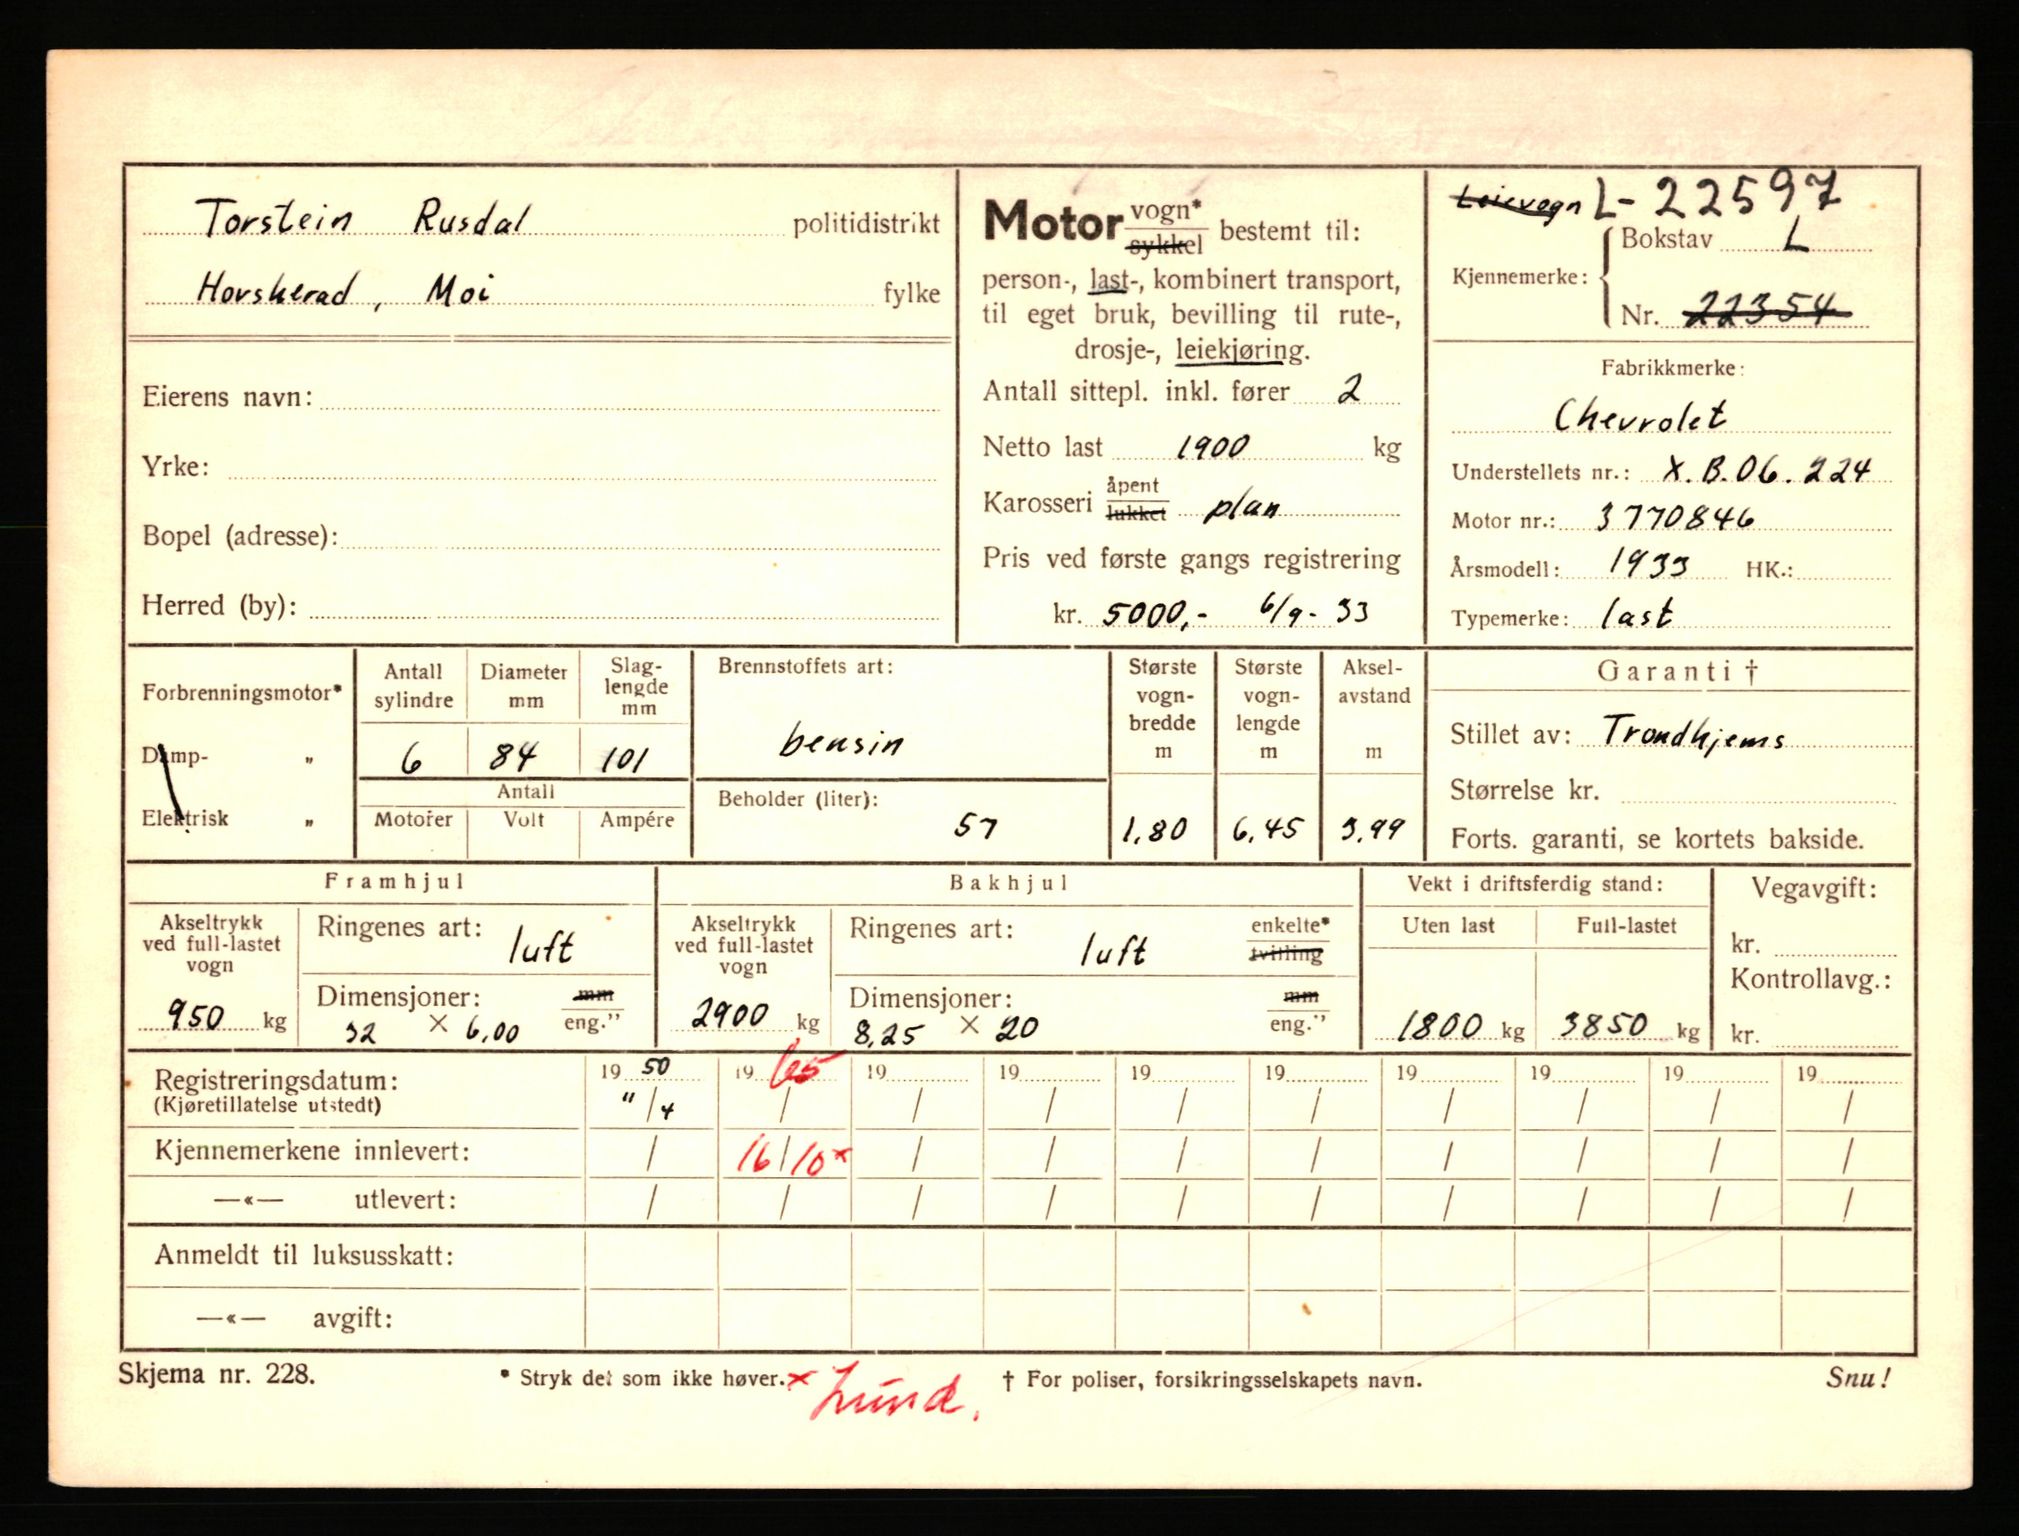 Torstein Rusdal politidistrikt
Hovsherad, Moi fylke
Eierens navn:
Yrke:
Bopel (adresse):
Herred (by):
Motor vogn* sykkel bestemt til:
person-, last-, kombinert transport,
til eget bruk, bevilling til rute-,
drosje-, leiekjøring.
Antall sittepl. inkl. fører 2
Netto last 1900 kg
Karosseri åpent lukket plan
Pris ved første gangs registrering
kr. 5000,- 6/9-33
Leievogn L-22597
Kjennemerke: Bokstav L
Nr. 22354
Fabrikkmerke:
Chevrolet
Understellets nr.: X.B.06.224
Motor nr.: 3770846
Årsmodell: 1933 HK.:
Typemerke: last
Forbrenningsmotor*
Damp- "
Elektrisk "
Antall sylindre 6
Diameter mm 84
Slaglengde mm 101
Antall
Motorer Volt Ampére
Brennstoffets art:
bensin
Beholder (liter):
57
Største vogn-bredde m 1,80
Største vogn-lengde m 6,45
Aksel-avstand m 3,99
Garanti †
Stillet av: Trondhjems
Størrelse kr.
Forts. garanti, se kortets bakside.
Framhjul
Akseltrykk ved full-lastet vogn
950 kg
Ringenes art: luft
Dimensjoner: mm eng."
32 × 6,00
Bakhjul
Akseltrykk ved full-lastet vogn
2900 kg
Ringenes art: luft enkelte* tvilling
Dimensjoner: mm eng."
8,25 × 20
Vekt i driftsferdig stand:
Uten last Full-lastet
1800 kg 3850 kg
Vegavgift:
kr.
Kontrollavg.:
kr.
Registreringsdatum: 19 50 19 65 19 19 19 19 19 19 19 19
(Kjøretillatelse utstedt) "/4 / / / / / / / / /
Kjennemerkene innlevert: / 16/10 x / / / / / / / /
—«— utlevert: / / / / / / / / / /
Anmeldt til luksusskatt:
—«— avgift:
Skjema nr. 228. * Stryk det som ikke høver. x Lund. † For poliser, forsikringsselskapets navn. Snu!